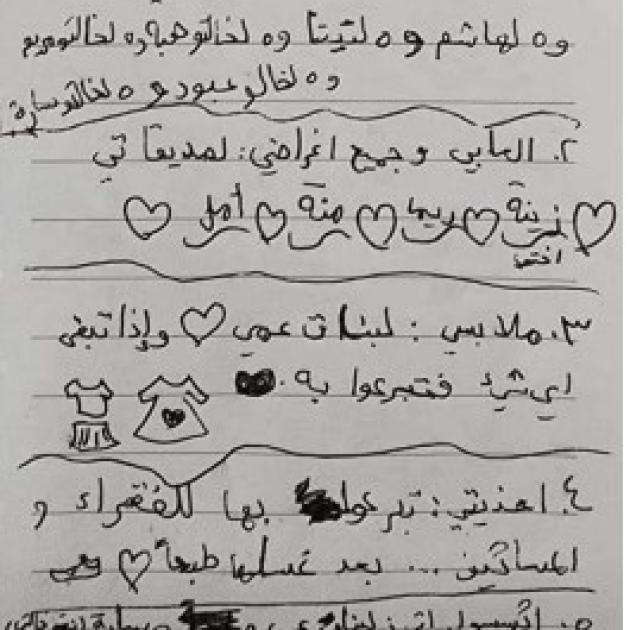 و ٥ لهاشم و ٥ لتيتا و ٥ لخالتو هبة و ٥ لخالتو مريم
و ٥ لخالو عبود و ٥ لخالتو سارة
٢. العابي وجميع اغراضي: لصديقاتي
زينة ريما منة أمل
اختي
٣. ملابسي: لبنات عمي وإذا تبقى
اي شيء فتبرعوا به.
٤. احذيتي: تبرعوا بها للفقراء و
المساكين ... بعد غسلها طبعاً
٥.